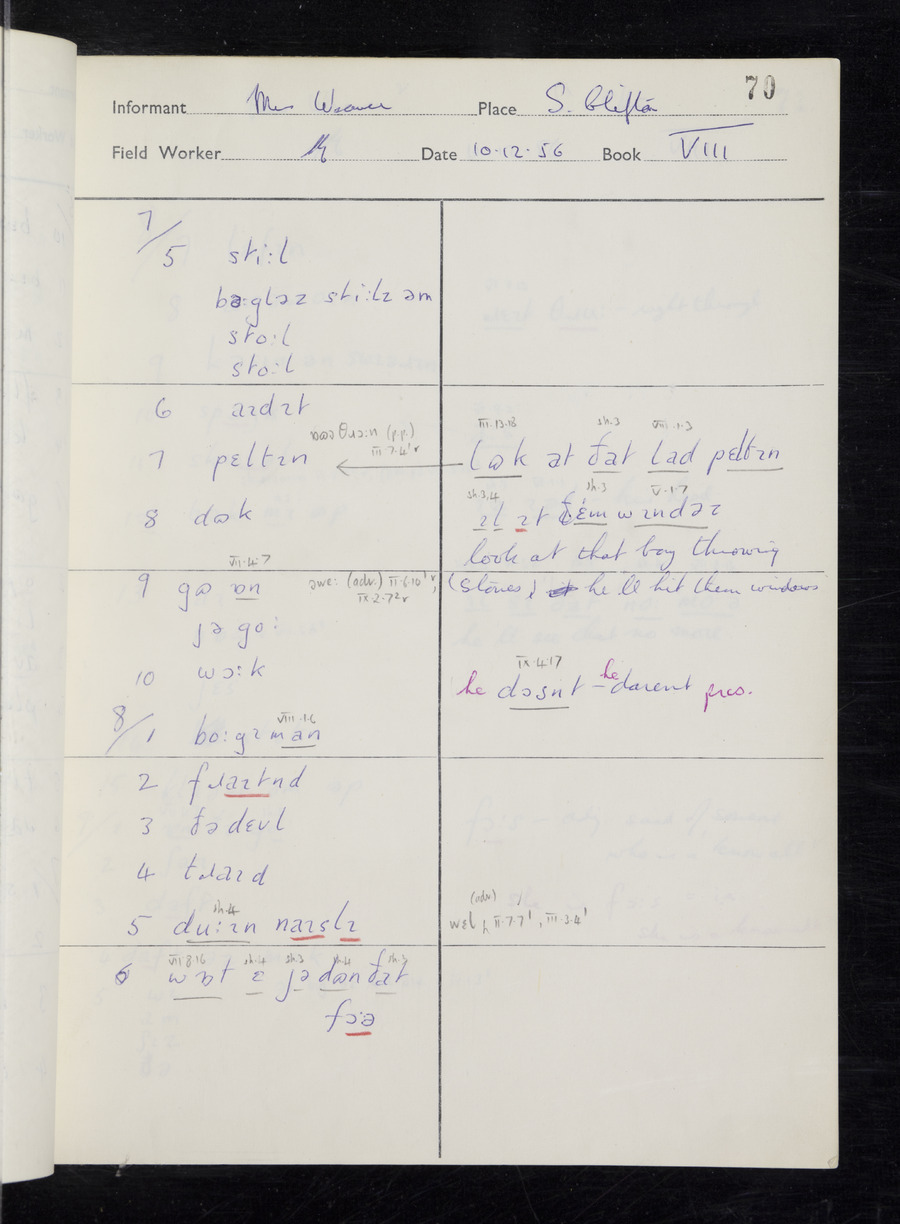 70
Informant Mrs Weaver Place S. Clifton
Field Worker Date 10·12·56 Book VIII
7/
5 sti:l
bə:gləz sti:lz əm
sto:l
sto:l
6 aɪdɪt
7 pɛltɪn
(p.p.)
III·7·4' r
III·13·18 sh.3 VIII·1·3
lɷk ət ðat lad pɛltɪn
8 dɷk
sh.3,4 sh.3 V·1·7
ɪl ɪt ðɛm wɪndəz
look at that boy throwing
(stones) he'll hit them windows
VII·4·7
9 gɷ ɒn əwe: (adv.) II·6·10' r,
IX·2·7² r
jə go:
10 wɔ:k
IX·4·17
he dɔsnt – he darent pres.
8/
VIII·1·6
1 bo:gɪman
2 fɹaɪtnd
3 ðə dɛvl
4 tɹaɪd
sh.4
5 du:ɪn naɪslɪ
(adv)
wɛl II·7·7', III·3·4'
VII·8·16 sh.4 sh.3 sh.4 sh.3
6 wɒt ɛ jə dɷn ðat
fɔ:ə